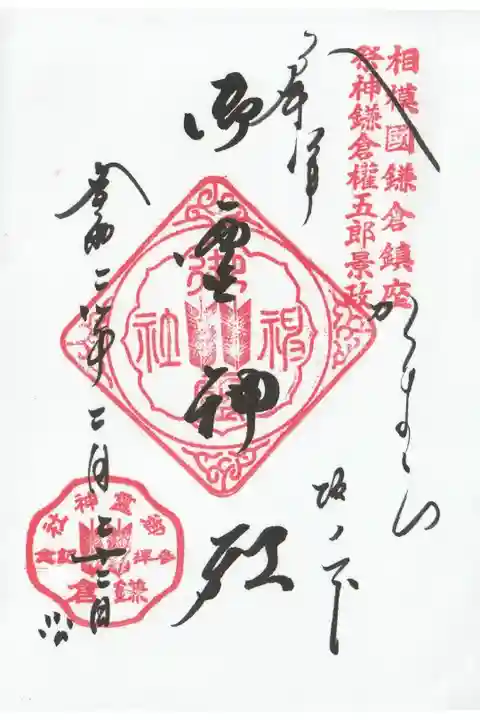 相模國鎌倉鎮座
祭神鎌倉權五郎景政
奉拝
かまくら
坂ノ下
御霊神社
御霊神社
令和二年二月二十二日
御靈神社
参拝記念
鎌倉